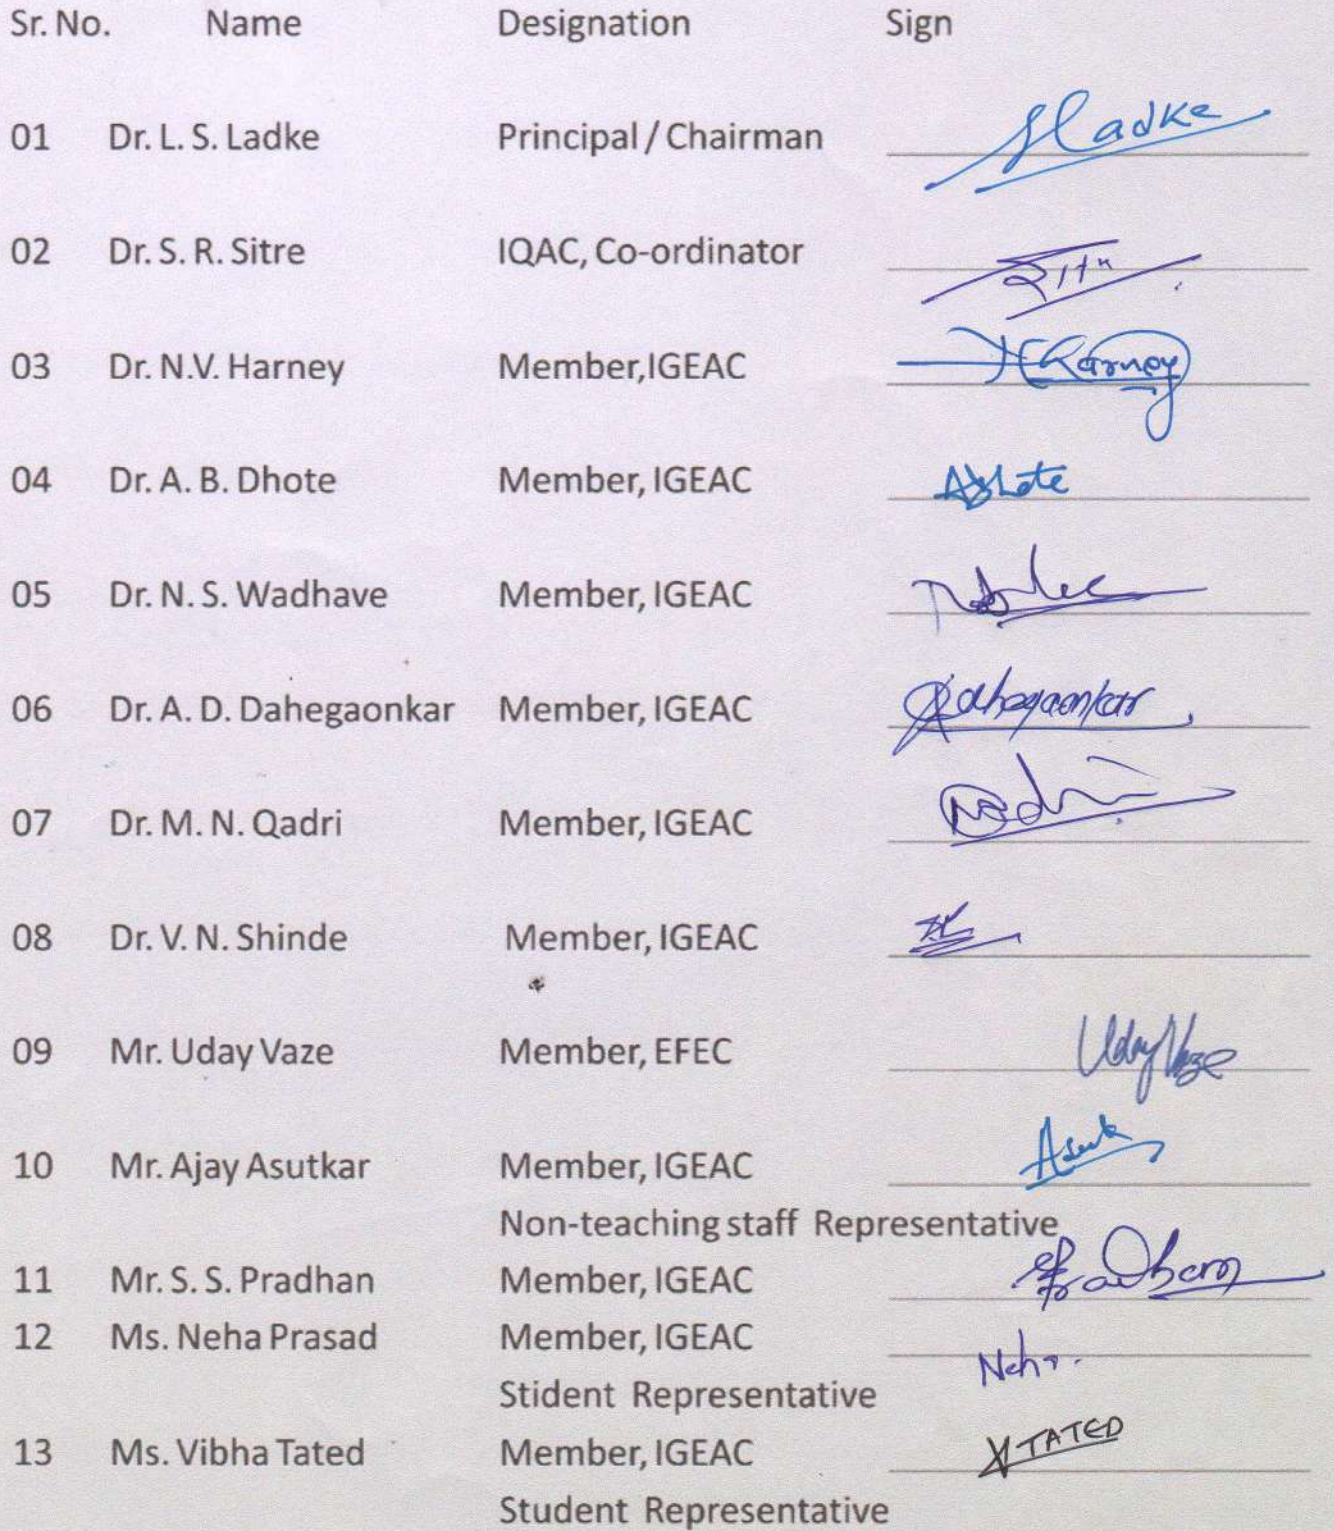 Sr. No. Name Designation Sign
01 Dr. L. S. Ladke Principal / Chairman Ladke
02 Dr. S. R. Sitre IQAC, Co-ordinator
03 Dr. N.V. Harney Member,IGEAC NHarney
04 Dr. A. B. Dhote Member, IGEAC ABhote
05 Dr. N. S. Wadhave Member, IGEAC
06 Dr. A. D. Dahegaonkar Member, IGEAC Dahegaonkar
07 Dr. M. N. Qadri Member, IGEAC Qadri
08 Dr. V. N. Shinde Member, IGEAC
09 Mr. Uday Vaze Member, EFEC Uday Vaze
10 Mr. Ajay Asutkar Member, IGEAC
Non-teaching staff Representative
11 Mr. S. S. Pradhan Member, IGEAC Pradhan
12 Ms. Neha Prasad Member, IGEAC Neha.
Stident Representative
13 Ms. Vibha Tated Member, IGEAC VTATED
Student Representative